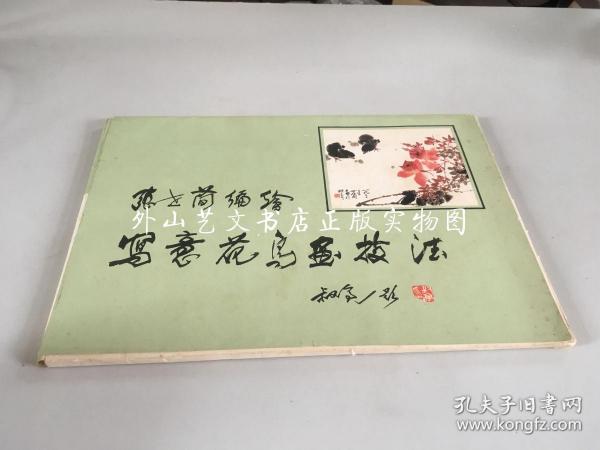 陈世简编绘
外山艺文书店正版实物图
写意花鸟画技法
孔夫子旧书网
www.kongfz.com